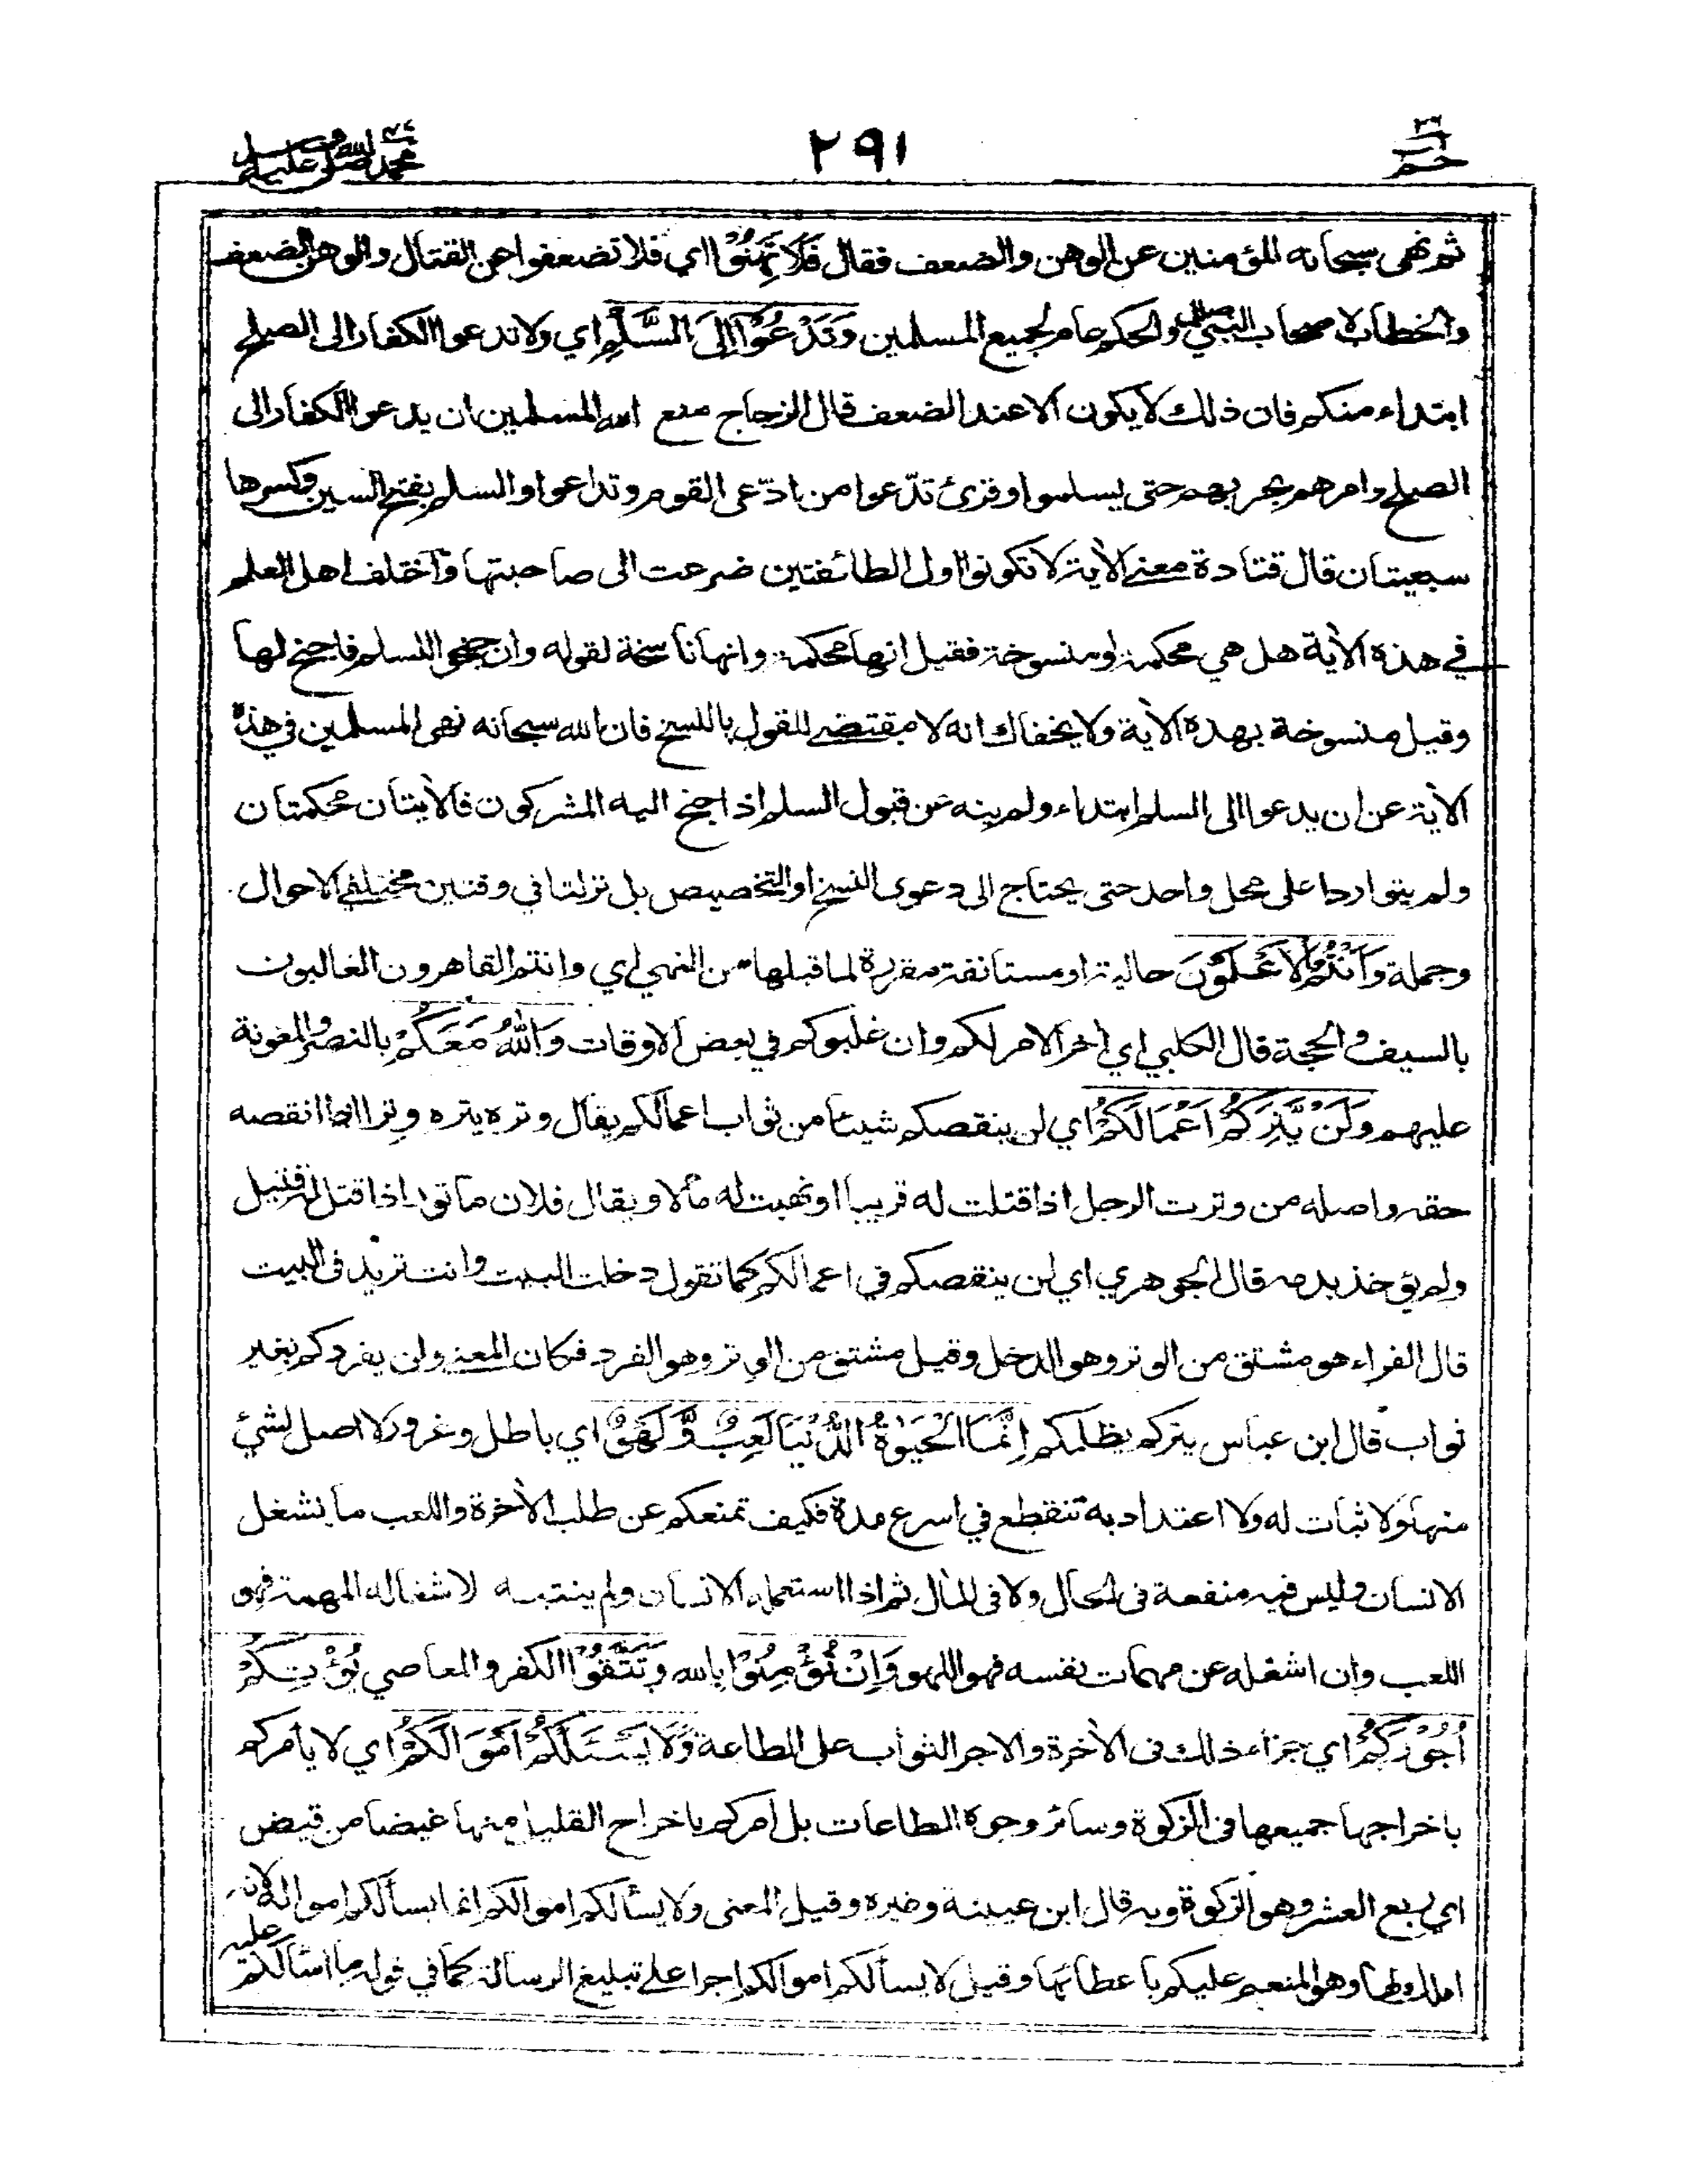 ٢٦ حم
٢٩١
٤٧ محمد صلى الله عليه وسلم
ثم نهى سبحانه المؤمنين عن الوهن والضعف فقال فَلَا تَهِنُوْا اي فلا تضعفوا عن القتال والوهن الضعف
والخطاب لاصحاب النبي صللم والحكم عام لجميع المسلمين وَتَدْعُوْٓا اِلَى السَّلْمِ اي ولا تدعوا الكفار الى الصلح
ابتداء منكم فان ذلك لا يكون الا عند الضعف قال الزجاج منع الله المسلمين ان يدعوا الكفار الى
الصلح وامرهم بحربهم حتى يسلموا وقرئ تدّعوا من ادّعى القوم وتداعوا والسلم بفتح السين وكسرها
سبعيتان قال قتادة معنى الأية لا تكونوا اول الطائفتين ضرعت الى صاحبتها واختلف اهل العلم
في هذه الأية هل هي محكمة او منسوخة فقيل انها محكمة وانها ناسخة لقوله وان جنحوا للسلم فاجنح لها
وقيل منسوخة بهذه الأية ولا يخفاك انه لا مقتضي للقول بالنسخ فان الله سبحانه نهى المسلمين في هذه
الأية عن ان يدعوا الى السلم ابتداء ولم ينه عن قبول السلم اذا جنح اليه المشركون فالأيتان محكمتان
ولم يتواردا على محل واحد حتى يحتاج الى دعوى النسخ او التخصيص بل نزلتا في وقتين مختلفي الاحوال
وجملة وَاَنْتُمُ الْاَعْلَوْنَ حالية او مستانفة مقررة لما قبلها من النهي اي وانتم القاهرون الغالبون
بالسيف والحجة قال الكلبي اي اخر الامر لكم وان غلبوكم في بعض الاوقات وَاللّٰهُ مَعَكُمْ بالنصر والمعونة
عليهم وَلَنْ يَّتِرَكُمْ اَعْمَالَكُمْ اي لن ينقصكم شيئا من ثواب اعمالكم يقال وتره يتره وترا اذا انقصه
حقه واصله من وترت الرجل اذا قتلت له قريبا او نهبت له مالا ويقال فلان ماتور اذا قتل له قتيل
ولم يؤخذ بدمه قال الجوهري اي لن ينقصكم في اعمالكم كما تقول دخلت البيت وانت تريد في البيت
قال الفراء هو مشتق من الوتر وهو الدخل وقيل مشتق من الوتر وهو الفرد فكان المعنى ولن يفردكم بغير
ثواب قال ابن عباس يتركم يظلمكم اِنَّمَا الْحَيٰوةُ الدُّنْيَا لَعِبٌ وَّلَهْوٌ اي باطل وغرور لا اصل لشئ
منها ولا ثبات له ولا اعتداد به تنقطع في اسرع مدة فكيف تمنعكم عن طلب الأخرة واللعب ما يشغل
الانسان وليس فيه منفعة في الحال ولا في المأل ثم اذا استعمله الانسان ولم ينتبه لاشغاله المهمة فهو
اللعب وان اشغله عن مهمات نفسه فهو اللهو وَاِنْ تُؤْمِنُوْا بالله وَتَتَّقُوْا الكفر والمعاصي يُؤْتِكُمْ
اُجُوْرَكُمْ اي جزاء ذلك في الأخرة والاجر الثواب على الطاعة وَلَا يَسْئَلْكُمْ اَمْوَالَكُمْ اي لا يأمركم
باخراجها جميعها في الزكوة وسائر وجوه الطاعات بل امركم باخراج القليل منها غيضا من فيض
اي ربع العشر وهو الزكوة وبه قال ابن عيينة وغيره وقيل المعنى ولا يسألكم اموالكم انما يسألكم امواله لانه
املك لها وهو المنعم عليكم باعطائها وقيل لا يسألكم اموالكم اجرا على تبليغ الرسالة كما في قوله ما اسألكم عليه